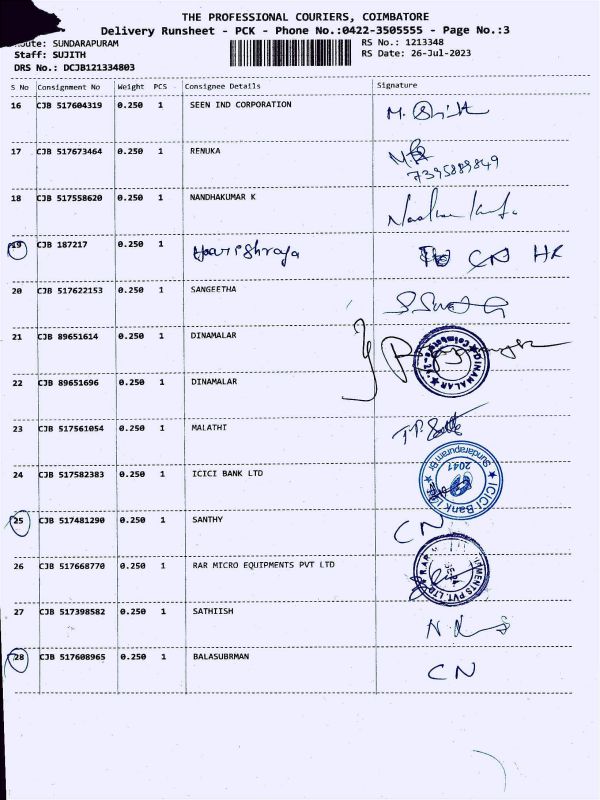 THE PROFESSIONAL COURIERS, COIMBATORE
Delivery Runsheet - PCK - Phone No.:0422-3505555 - Page No.:3
Route: SUNDARAPURAM RS No.: 1213348
Staff: SUJITH RS Date: 26-Jul-2023
DRS No.: DCJB121334803
S No Consignment No Weight PCS Consignee Details Signature
16 CJB 517604319 0.250 1 SEEN IND CORPORATION
17 CJB 517673464 0.250 1 RENUKA
7395889849
18 CJB 517558620 0.250 1 NANDHAKUMAR K
19 CJB 187217 0.250 1 Harishraja CN HR
20 CJB 517622153 0.250 1 SANGEETHA
21 CJB 89651614 0.250 1 DINAMALAR
DINAMALAR
22 CJB 89651696 0.250 1 DINAMALAR
23 CJB 517561054 0.250 1 MALATHI
24 CJB 517582383 0.250 1 ICICI BANK LTD
Sundarapuram Br. 2041 ICICI Bank
25 CJB 517481290 0.250 1 SANTHY CN
26 CJB 517668770 0.250 1 RAR MICRO EQUIPMENTS PVT LTD
27 CJB 517398582 0.250 1 SATHIISH
28 CJB 517608965 0.250 1 BALASUBRMAN CN